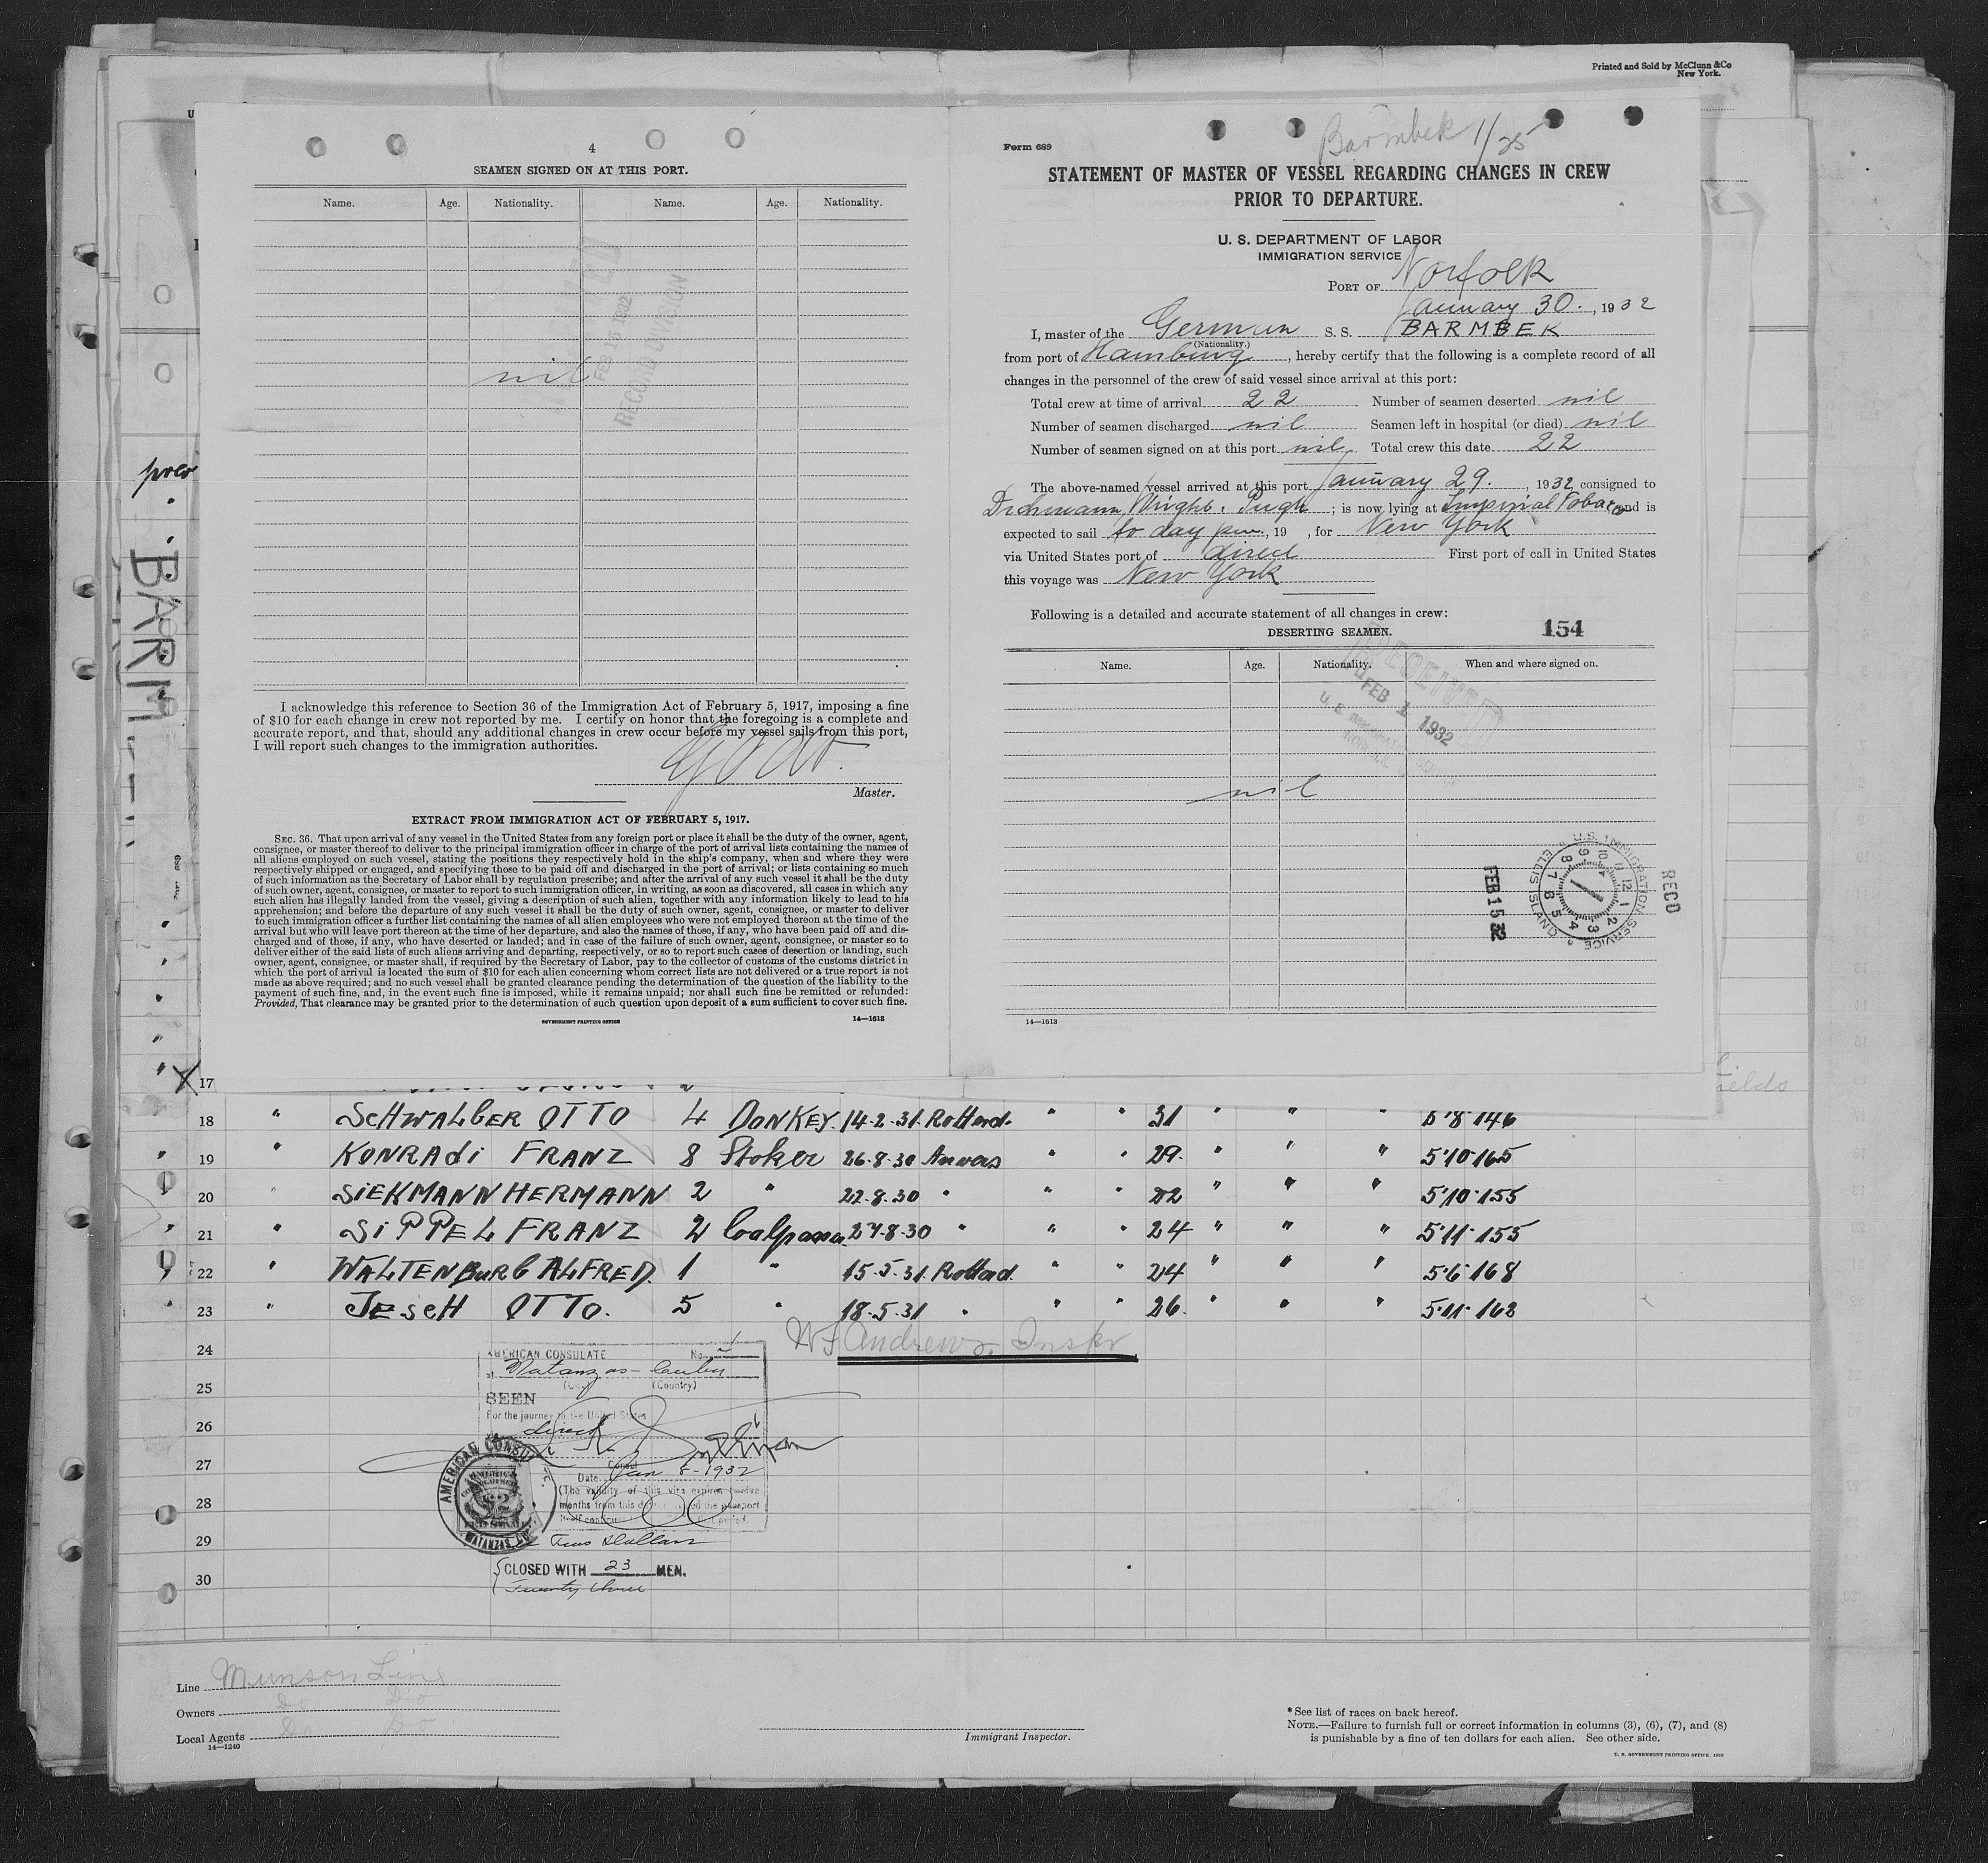 Printed and Sold by McClunn & Co
New York.
4
SEAMEN SIGNED ON AT THIS PORT.
Name. Age. Nationality. Name. Age. Nationality.
FEB 15 1932
RECORD DIVISION
nil
I acknowledge this reference to Section 36 of the Immigration Act of February 5, 1917, imposing a fine
of $10 for each change in crew not reported by me. I certify on honor that the foregoing is a complete and
accurate report, and that, should any additional changes in crew occur before my vessel sails from this port,
I will report such changes to the immigration authorities.
Master.
EXTRACT FROM IMMIGRATION ACT OF FEBRUARY 5, 1917.
SEC. 36. That upon arrival of any vessel in the United States from any foreign port or place it shall be the duty of the owner, agent,
consignee, or master thereof to deliver to the principal immigration officer in charge of the port of arrival lists containing the names of
all aliens employed on such vessel, stating the positions they respectively hold in the ship's company, when and where they were
respectively shipped or engaged, and specifying those to be paid off and discharged in the port of arrival; or lists containing so much
of such information as the Secretary of Labor shall by regulation prescribe; and after the arrival of any such vessel it shall be the duty
of such owner, agent, consignee, or master to report to such immigration officer, in writing, as soon as discovered, all cases in which any
such alien has illegally landed from the vessel, giving a description of such alien, together with any information likely to lead to his
apprehension; and before the departure of any such vessel it shall be the duty of such owner, agent, consignee, or master to deliver
to such immigration officer a further list containing the names of all alien employees who were not employed thereon at the time of the
arrival but who will leave port thereon at the time of her departure, and also the names of those, if any, who have been paid off and dis-
charged and of those, if any, who have deserted or landed; and in case of the failure of such owner, agent, consignee, or master so to
deliver either of the said lists of such aliens arriving and departing, respectively, or so to report such cases of desertion or landing, such
owner, agent, consignee, or master shall, if required by the Secretary of Labor, pay to the collector of customs of the customs district in
which the port of arrival is located the sum of $10 for each alien concerning whom correct lists are not delivered or a true report is not
made as above required; and no such vessel shall be granted clearance pending the determination of the question of the liability to the
payment of such fine, and, in the event such fine is imposed, while it remains unpaid; nor shall such fine be remitted or refunded:
Provided, That clearance may be granted prior to the determination of such question upon deposit of a sum sufficient to cover such fine.
GOVERNMENT PRINTING OFFICE 14—1613
Barmbek 1/25
Form 689
STATEMENT OF MASTER OF VESSEL REGARDING CHANGES IN CREW
PRIOR TO DEPARTURE.
U. S. DEPARTMENT OF LABOR
IMMIGRATION SERVICE
PORT OF Norfolk
January 30., 1932
I, master of the German S. S. BARMBEK
(Nationality.)
from port of Hamburg, hereby certify that the following is a complete record of all
changes in the personnel of the crew of said vessel since arrival at this port:
Total crew at time of arrival 22 Number of seamen deserted nil
Number of seamen discharged nil Seamen left in hospital (or died) nil
Number of seamen signed on at this port nil Total crew this date 22
The above-named vessel arrived at this port January 29., 1932 consigned to
Wright, Pugh; is now lying at Imperial Tobacco and is
expected to sail to day pm., 19 , for New York
via United States port of direct First port of call in United States
this voyage was New York
Following is a detailed and accurate statement of all changes in crew:
DESERTING SEAMEN. 154
Name. Age. Nationality. When and where signed on.
RECEIVED
FEB 1 1932
nil
U.S. IMMIGRATION SERVICE
ELLIS ISLAND
RECD
FEB 15 32
14—1613
BARM
17
18 " SCHWALBER OTTO 4 DONKEY. 14-2-31 Rotterd. " " 31 " " " 5'8 146
19 " KONRADI FRANZ 8 Stoker 26-8-30 Anvers " " 29. " " " 5'10 165
20 " SIEKMANN HERMANN 2 " 22-8-30 " " " 22 " " " 5'10 155
21 " SIPPEL FRANZ 2 Coalpasser 27-8-30 " " " 24 " " " 5'11 155
22 " WALTENBURG ALFRED. 1 " 15-5-31 Rotterd. " " 24 " " " 5'6 168
23 " JESCH OTTO. 5 " 18-5-31 " " " 26. " " " 5'11 162
24 Andrews, Inspr
25
26
27
28
29
30
AMERICAN CONSULATE No.
at Matanzas Cuba
(City) (Country)
SEEN
For the journey to the United States
direct
Consul
Date Jan 8-1932
(The validity of this visa expires twelve
months from this date
AMERICAN CONSUL
MATANZAS
$2
Two Dollars
CLOSED WITH 23 MEN.
Twenty three
Line Munson Line
Owners Do Do
Local Agents Do Do
14—1240
Immigrant Inspector.
* See list of races on back hereof.
NOTE.—Failure to furnish full or correct information in columns (3), (6), (7), and (8)
is punishable by a fine of ten dollars for each alien. See other side.
U. S. GOVERNMENT PRINTING OFFICE